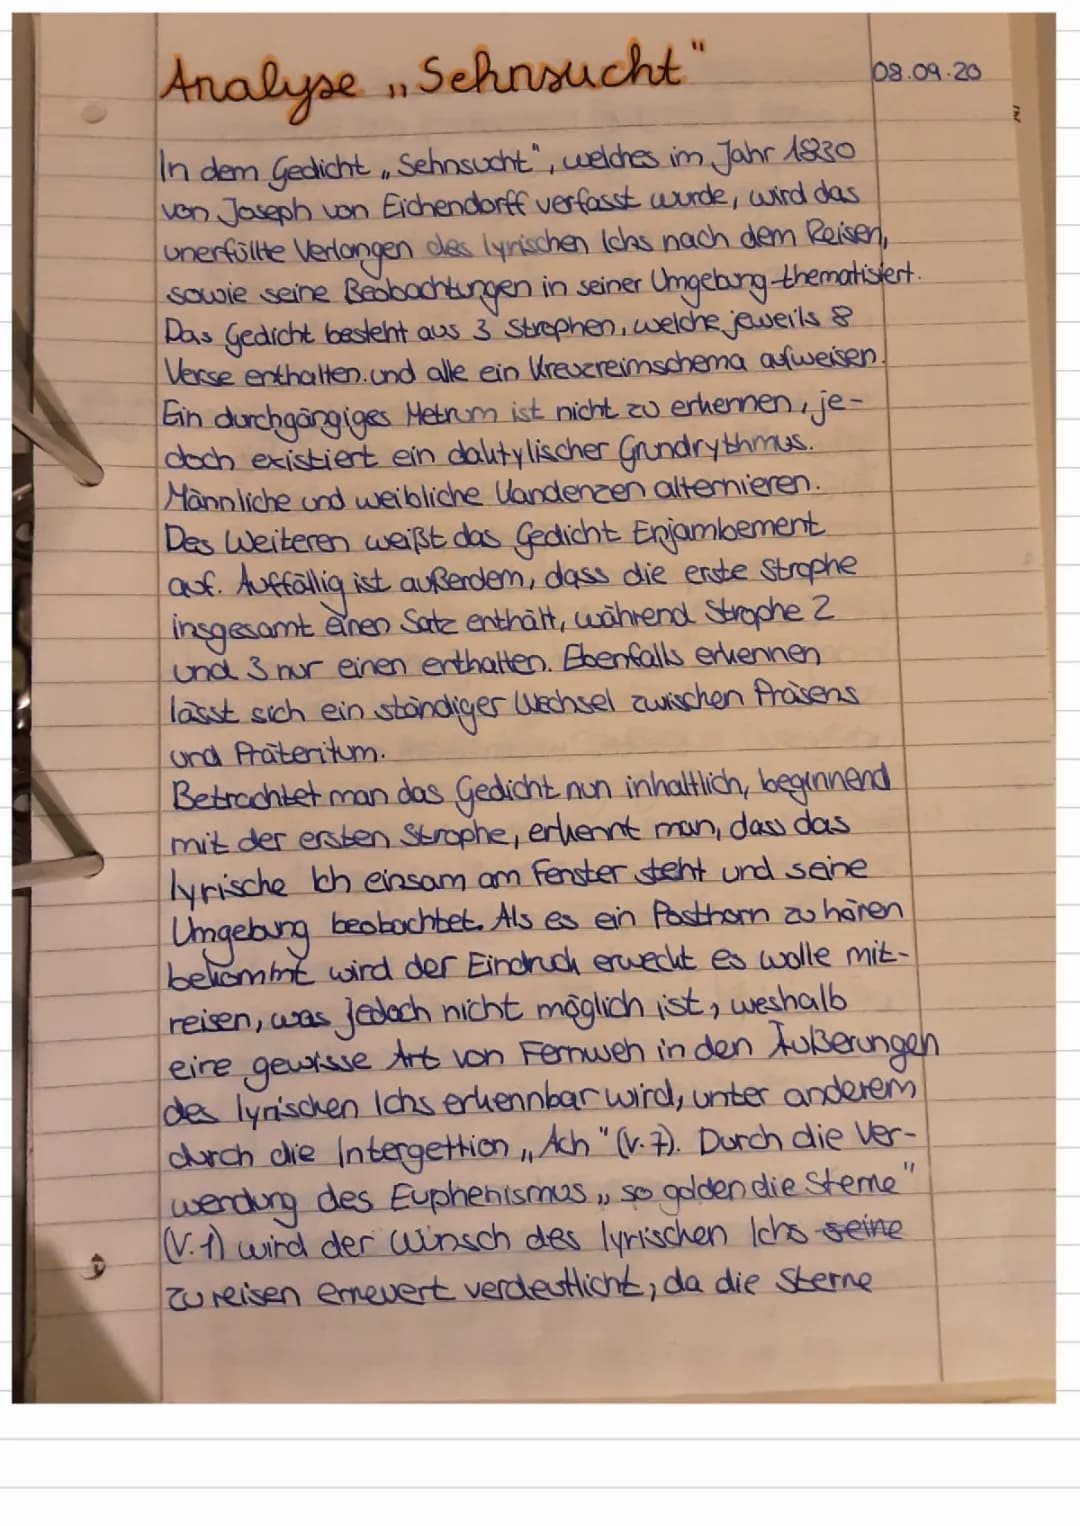 Analyse „Sehnsucht"
08.09.20
In dem Gedicht „Sehnsucht", welches im Jahr 1830
von Joseph von Eichendorff verfasst wurde, wird das
unerfüllte Verlangen des lyrischen Ichs nach dem Reisen,
sowie seine Beobachtungen in seiner Umgebung thematisiert.
Das Gedicht besteht aus 3 Strophen, welche jeweils 8
Verse enthalten und alle ein Kreuzreimschema aufweisen.
Ein durchgängiges Metrum ist nicht zu erkennen, je-
doch existiert ein daktylischer Grundrythmus.
Männliche und weibliche Kandenzen alternieren.
Des Weiteren weißt das Gedicht Enjambement
auf. Auffällig ist außerdem, dass die erste Strophe
insgesamt einen Satz enthält, während Strophe 2
und 3 nur einen enthalten. Ebenfalls erkennen
lässt sich ein ständiger Wechsel zwischen Präsens
und Präteritum.
Betrachtet man das Gedicht nun inhaltlich, beginnend
mit der ersten Strophe, erkennt man, dass das
lyrische Ich einsam am Fenster steht und seine
Umgebung beobachtet. Als es ein Posthorn zu hören
bekommt wird der Eindruck erweckt es wolle mit-
reisen, was jedoch nicht möglich ist, weshalb
eine gewisse Art von Fernweh in den Äußerungen
des lyrischen Ichs erkennbar wird, unter anderem
durch die Intergektion „Ach" (V.7). Durch die Ver-
wendung des Euphenismus „so golden die Sterne"
(V.1) wird der Wunsch des lyrischen Ichs seine
zu reisen erneuert verdeutlicht, da die Sterne